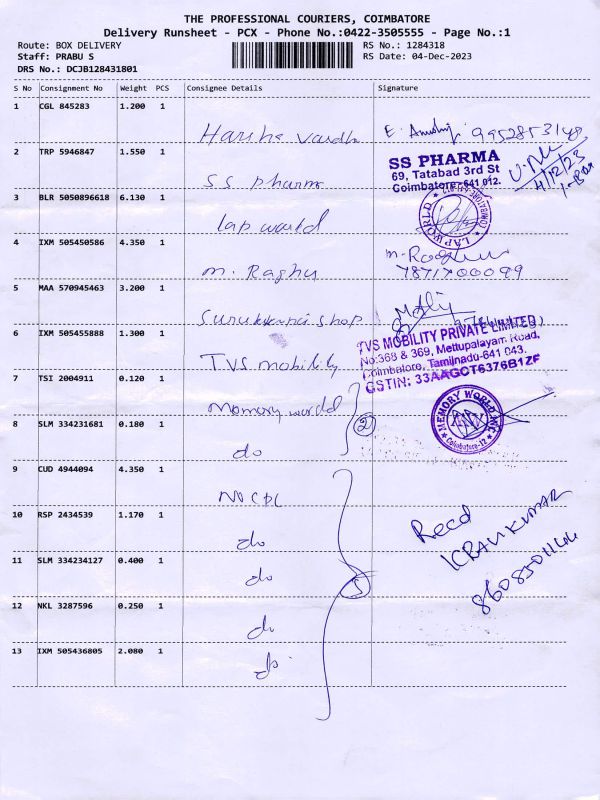 THE PROFESSIONAL COURIERS, COIMBATORE
Delivery Runsheet - PCX - Phone No.:0422-3505555 - Page No.:1
Route: BOX DELIVERY
Staff: PRABU S
DRS No.: DCJB128431801
RS No.: 1284318
RS Date: 04-Dec-2023
S No Consignment No Weight PCS Consignee Details Signature
1 CGL 845283 1.200 1
2 TRP 5946847 1.550 1
SS pharma
SS PHARMA
69, Tatabad 3rd St
Coimbatore-641 012.
4/12/23
3 BLR 5050896618 6.130 1
lap world
LAP WORLD
4 IXM 505450586 4.350 1
m. Raghu
7871700099
5 MAA 570945463 3.200 1
shop
6 IXM 505455888 1.300 1
TVS mobility
TVS MOBILITY PRIVATE LIMITED
No:368 & 369, Mettupalayam Road,
Coimbatore, Tamilnadu-641 043.
GSTIN: 33AAGCT6376B1ZF
7 TSI 2004911 0.120 1
memory world
MEMORY WORLD INC
Coimbatore-12
8 SLM 334231681 0.180 1
do
2
9 CUD 4944094 4.350 1
10 RSP 2434539 1.170 1
do
11 SLM 334234127 0.400 1
do
5
12 NKL 3287596 0.250 1
do
13 IXM 505436805 2.080 1
do
Recd